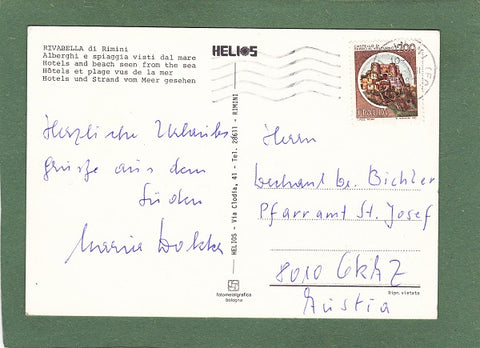 RIVABELLA di Rimini
Alberghi e spiaggia visti dal mare
Hotels and beach seen from the sea
Hôtels et plage vus de la mer
Hotels und Strand vom Meer gesehen
HELIOS
ITALIA
Herzliche Urlaubs
grüße aus dem
Süden
Maria
HELIOS - Via Clodia, 41 - Tel. 28611 - RIMINI
Herrn
Dechant
Pfarramt St. Josef
8010 GRAZ
Austria
fotometalgrafica
bologna
Ripr. vietata